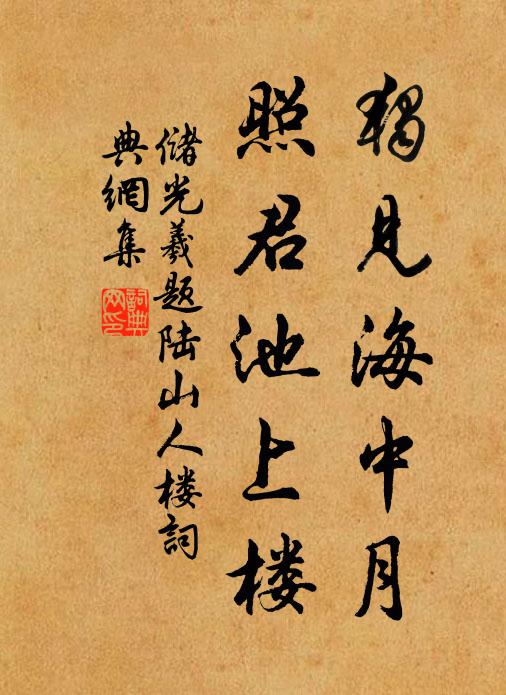 獨見海中月
照君池上楼
儲光羲题陆山人楼詞
典網集
詞典
网印